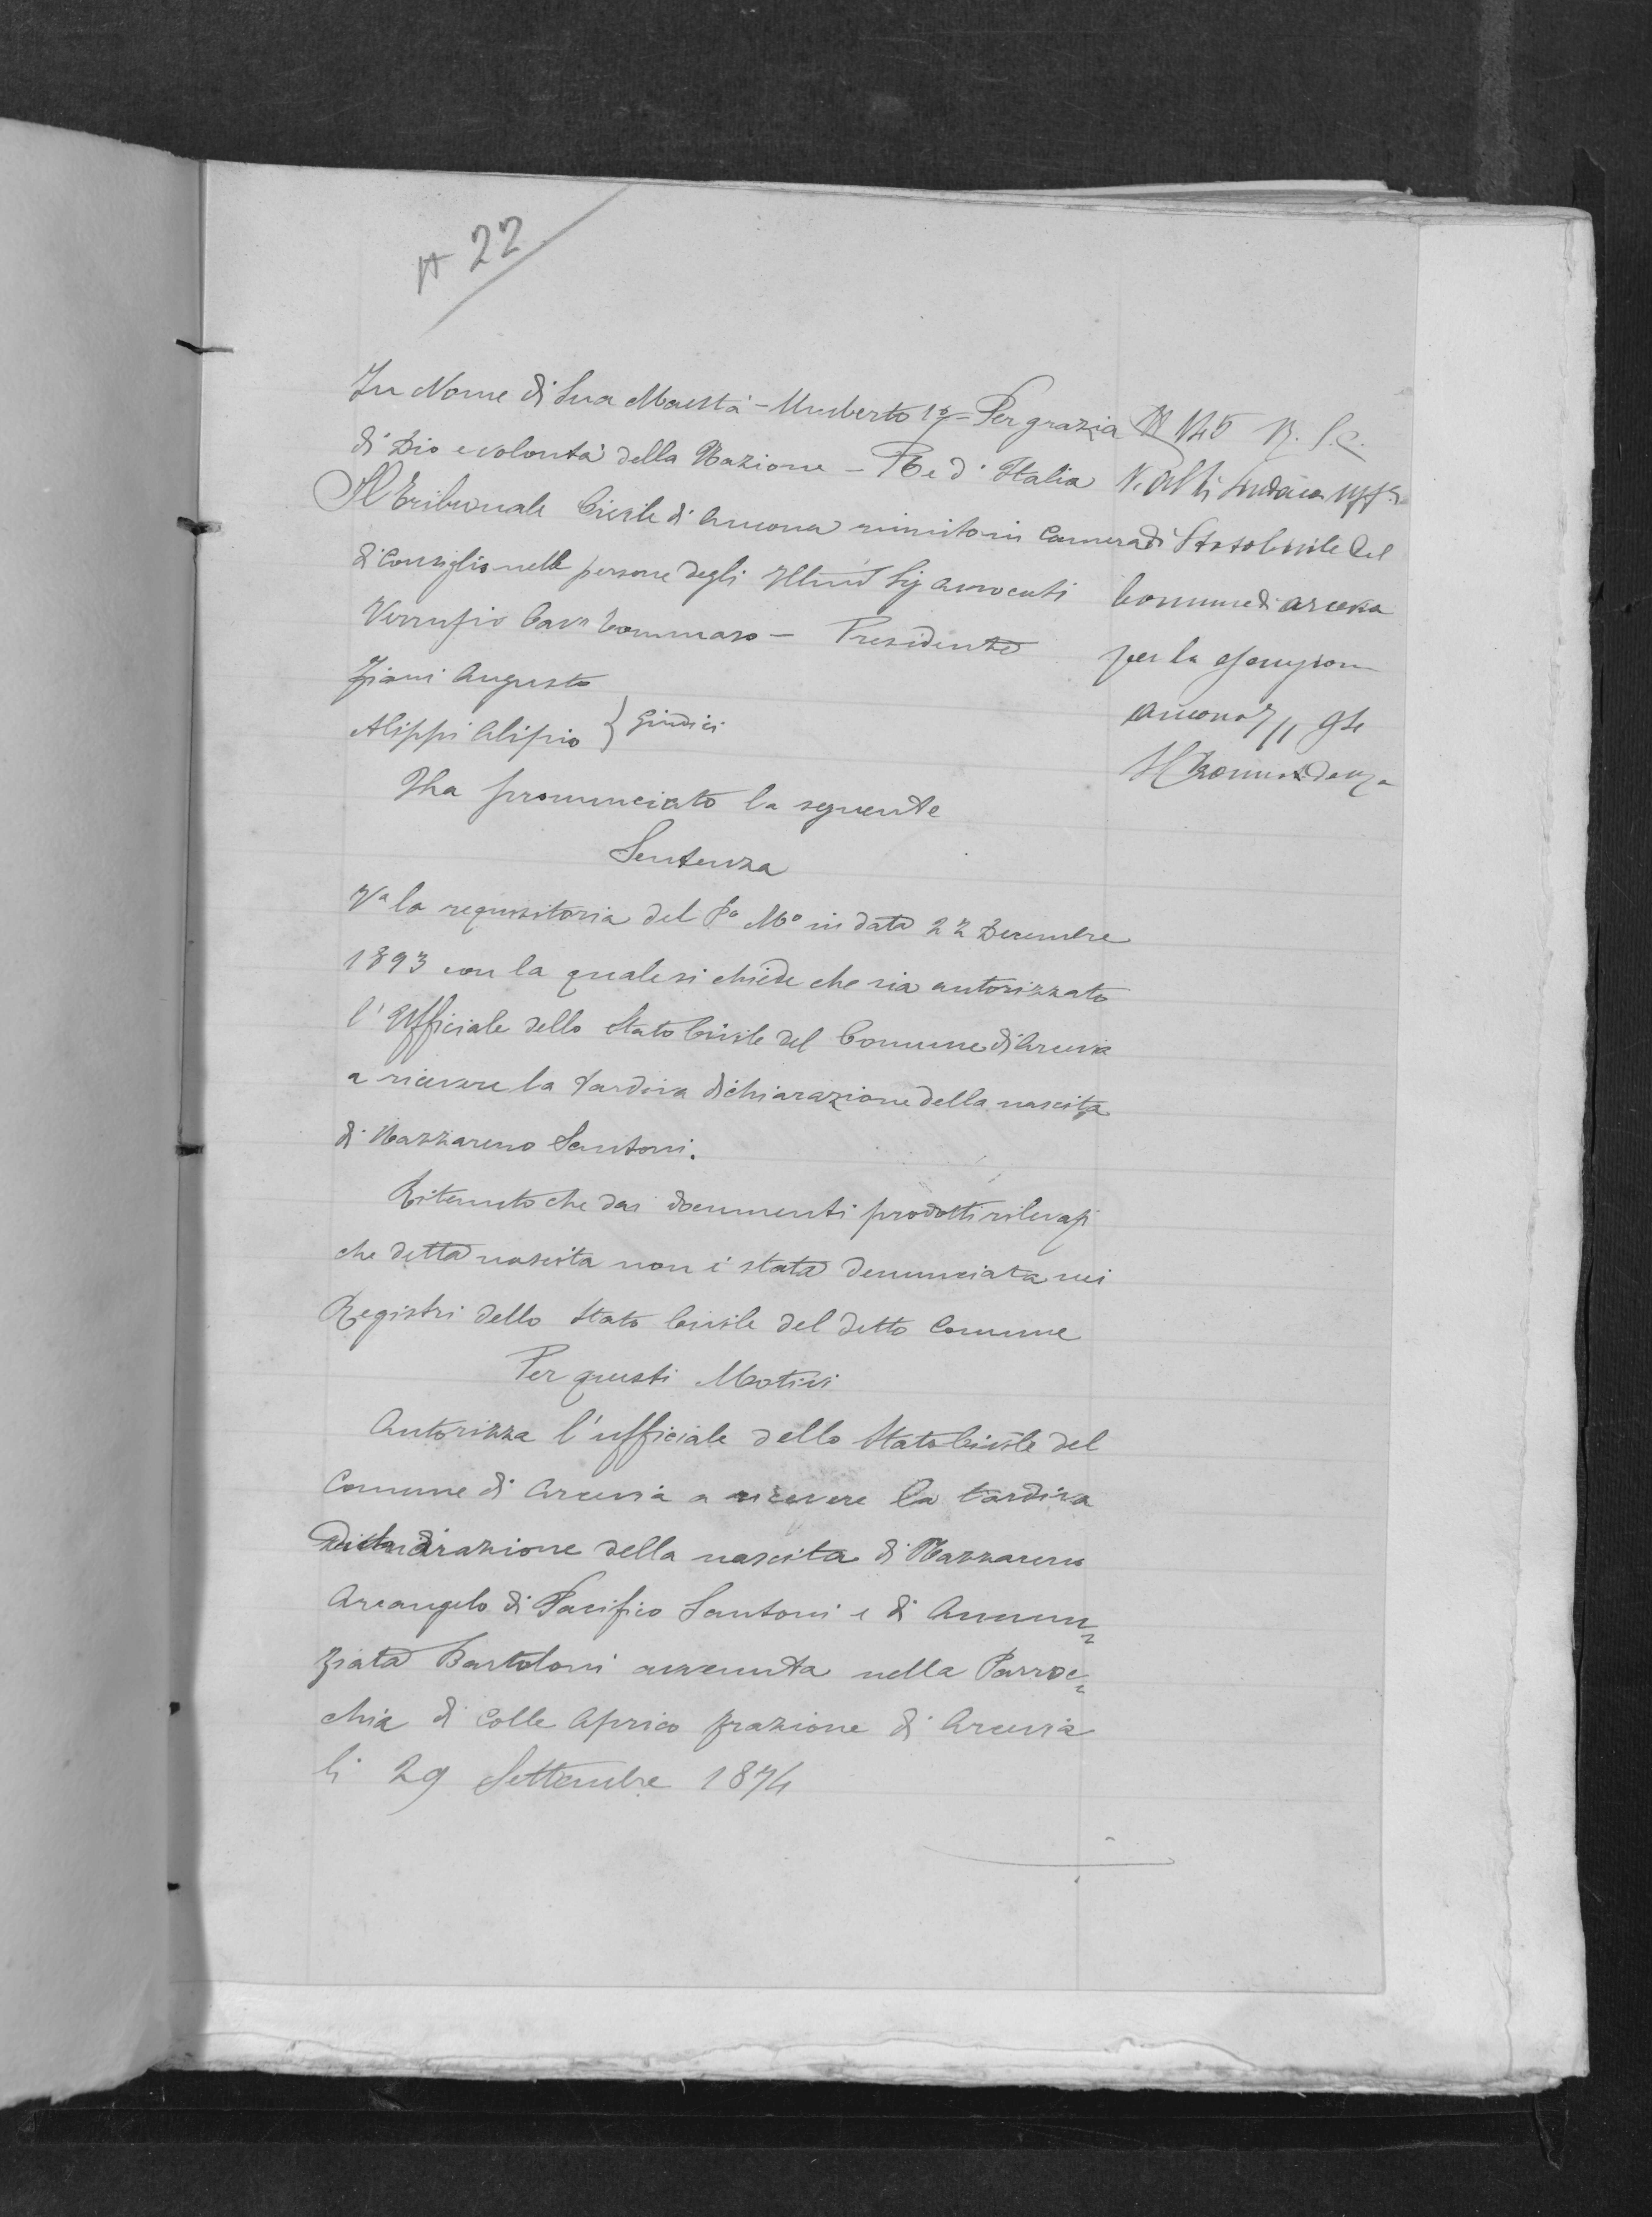 22
In Nome di Sua Maestà - Umberto 1º - Per grazia
di Dio e volontà della Nazione - Re d'Italia
Il Tribunale Civile di Ancona riunito in Camera
di Consiglio nelle persone degli Illmi Sig avvocati
Cavr Tommaso - Presidente
Ziani Augusto
Alippi Alipio } Giudici
Ha pronunciato la seguente
Sentenza
Va la requisitoria del Po Mo in data 22 Decembre
1893 con la quale si chiede che sia autorizzato
l'Ufficiale dello Stato Civile del Comune di Arcevia
a ricevere la tardiva dichiarazione della nascita
di Nazzareno Santoni.
Ritenuto che dai documenti prodotti rilevasi
che detta nascita non è stata denunciata nei
Registri dello Stato Civile del detto Comune
Per questi Motivi
Autorizza l'ufficiale dello Stato Civile del
Comune di Arcevia a ricevere la tardiva
Dichiarazione della nascita di Nazzareno
Arcangelo di Pacifico Santoni e di Annun=
ziata Bartoloni avvenuta nella Parroc=
chia di Colle Aprico frazione di Arcevia
li 29 Settembre 1874
145 R. S. C.
V. Al Sindaco Uff.
di Stato Civile del
Comune di Arcevia
per la esecuzione
Ancona 94